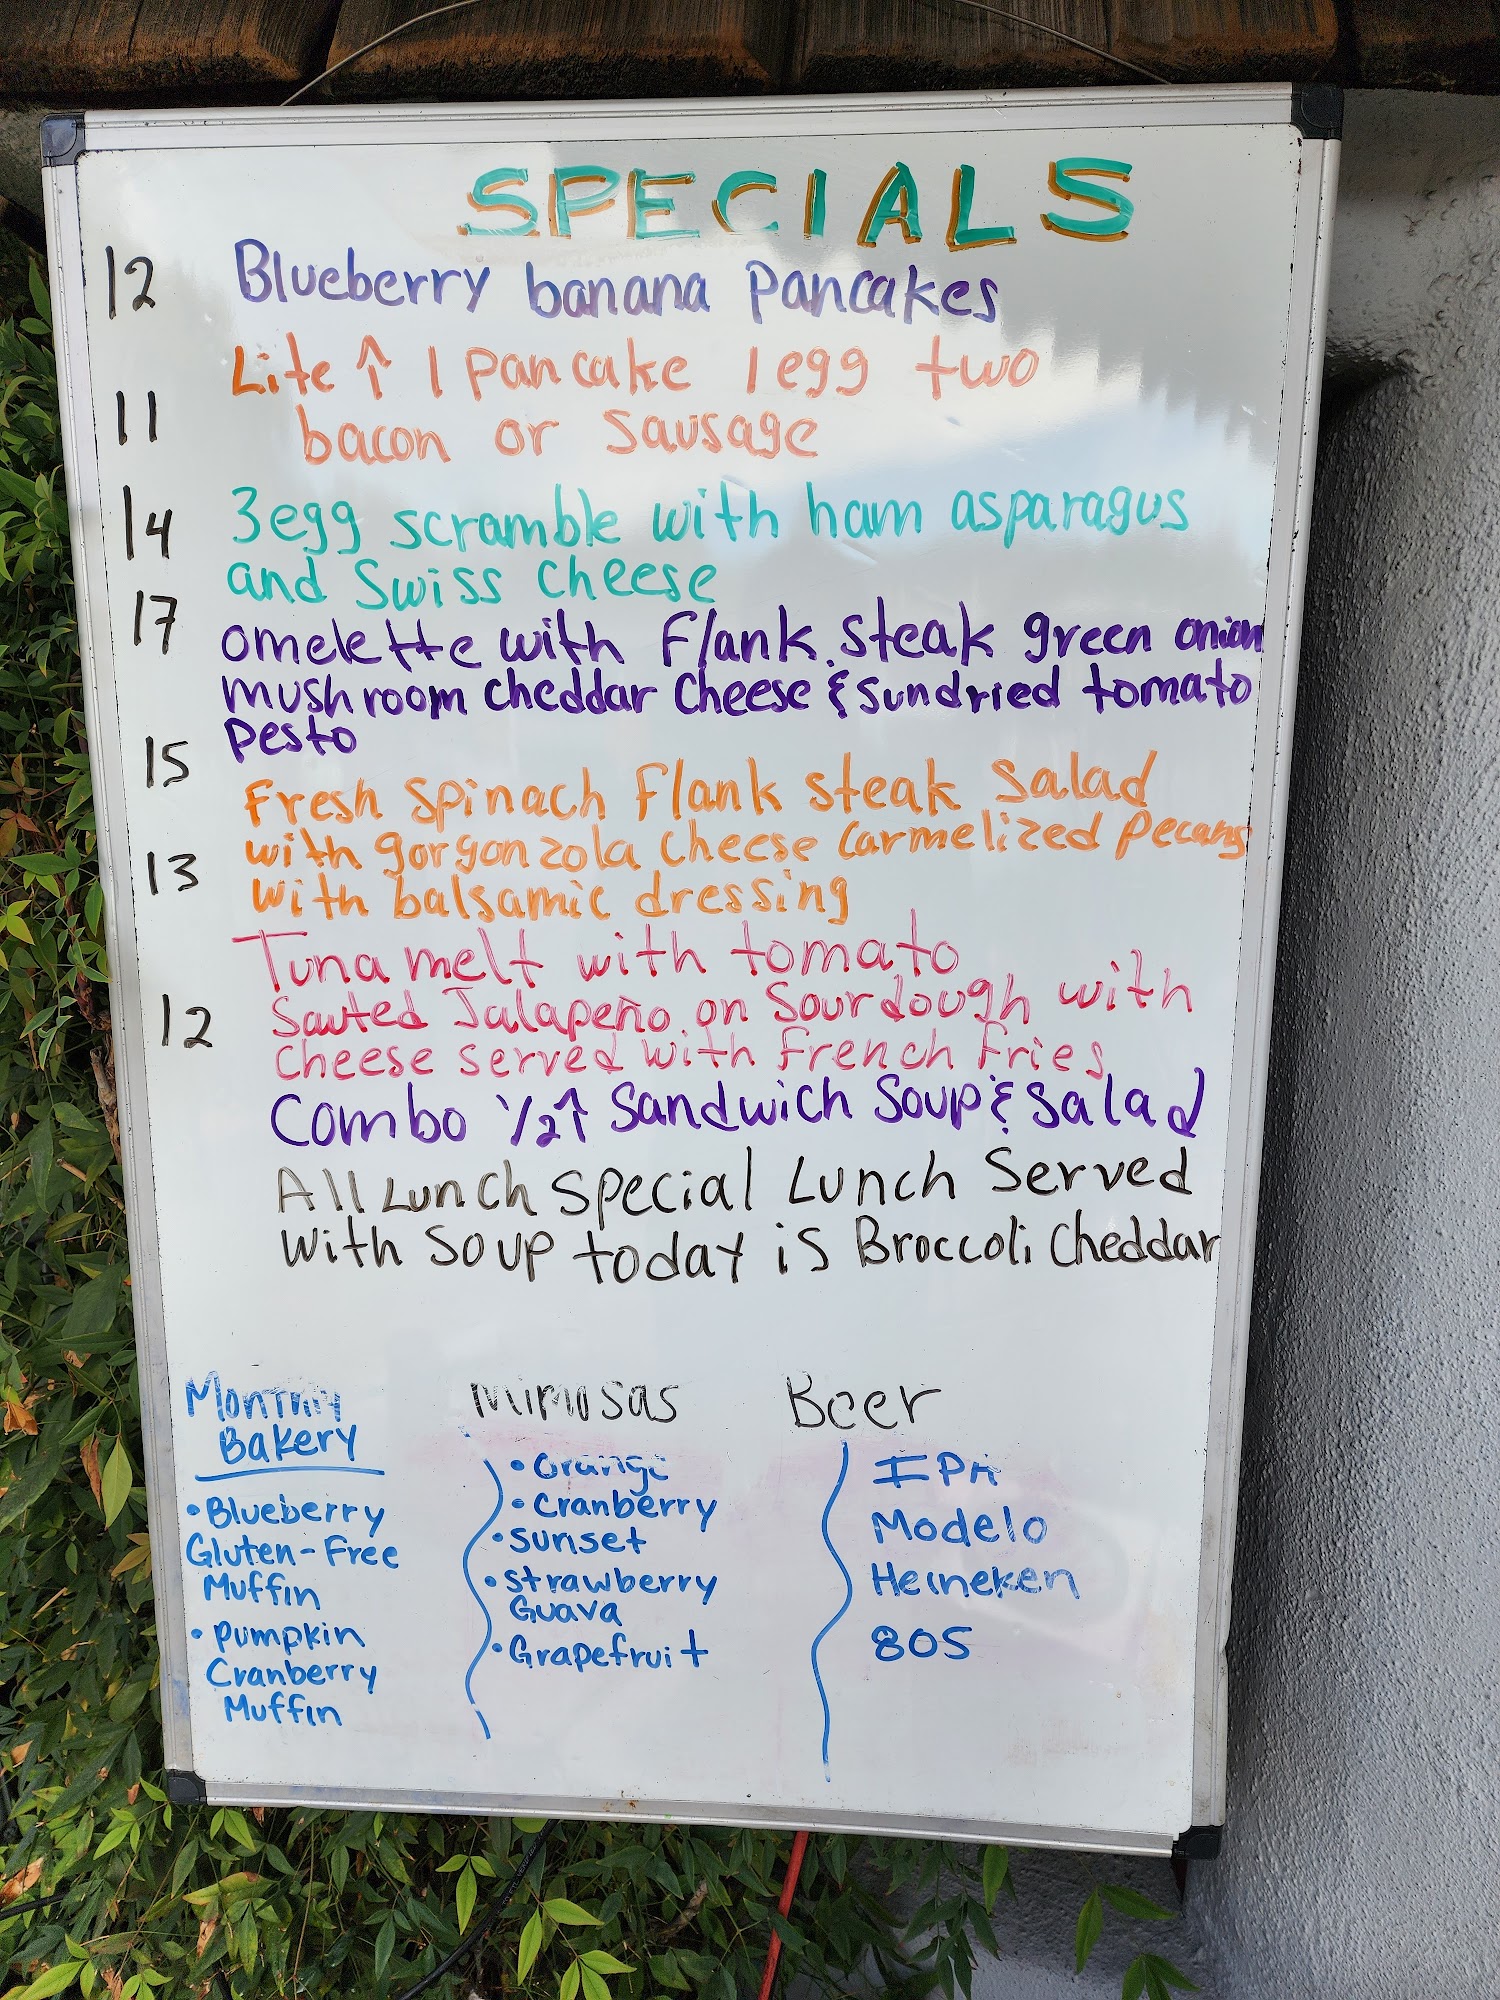 SPECIALS
12 Blueberry banana Pancakes
Lite ↑ 1 pancake 1 egg two
11 bacon or Sausage
14 3egg scramble with ham asparagus
and Swiss Cheese
17 omelette with Flank Steak green onion
mushroom cheddar Cheese & sundried tomato
Pesto
15 Fresh Spinach Flank Steak Salad
with gorgonzola Cheese Carmelized Pecans
13 with balsamic dressing
Tuna melt with tomato
12 Sauted Jalapeño on Sourdough with
Cheese served with French Fries
Combo 1/2↑ Sandwich Soup & Salad
All Lunch Special Lunch Served
With Soup today is Broccoli Cheddar
Monthly
Bakery
• Blueberry
Gluten-Free
Muffin
• Pumpkin
Cranberry
Muffin
Mimosas
• Orange
• Cranberry
• Sunset
• Strawberry
Guava
• Grapefruit
Beer
IPA
Modelo
Heineken
805